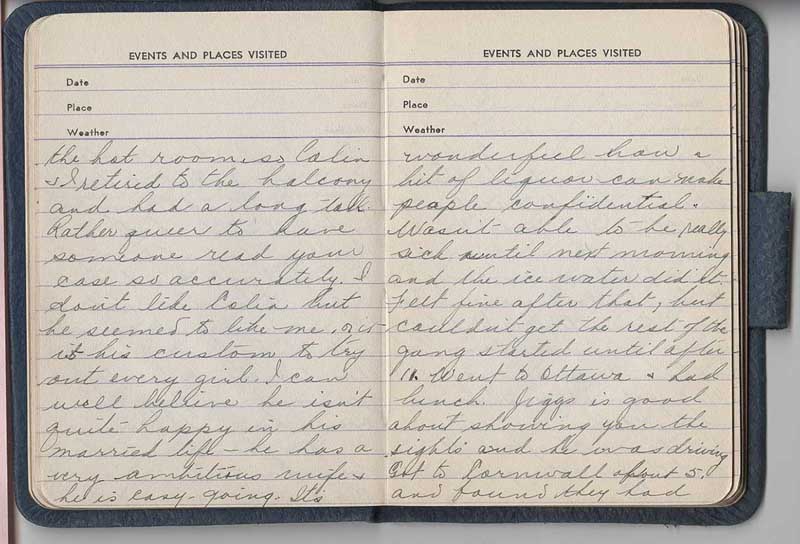 EVENTS AND PLACES VISITED
Date
Place
Weather
the hot rooms so Colin
& I retired to the balcony
and had a long talk.
Rather queer to have
someone read your
case so accurately. I
don't like Colin but
he seemed to like me, or it
is his custom to try
out every girl. I can
well believe he isn't
quite happy in his
married life - he has a
very ambitious wife &
he is easy-going. It's
EVENTS AND PLACES VISITED
Date
Place
Weather
wonderful how a
bit of liquor can make
people confidential.
Wasn't able to be really
sick until next morning
and the ice water did it.
Felt fine after that, but
couldn't get the rest of the
gang started until after
11. Went to Ottawa & had
lunch. Jiggs is good
about showing you the
sights and he was driving
Got to Cornwall about 5.
and found they had